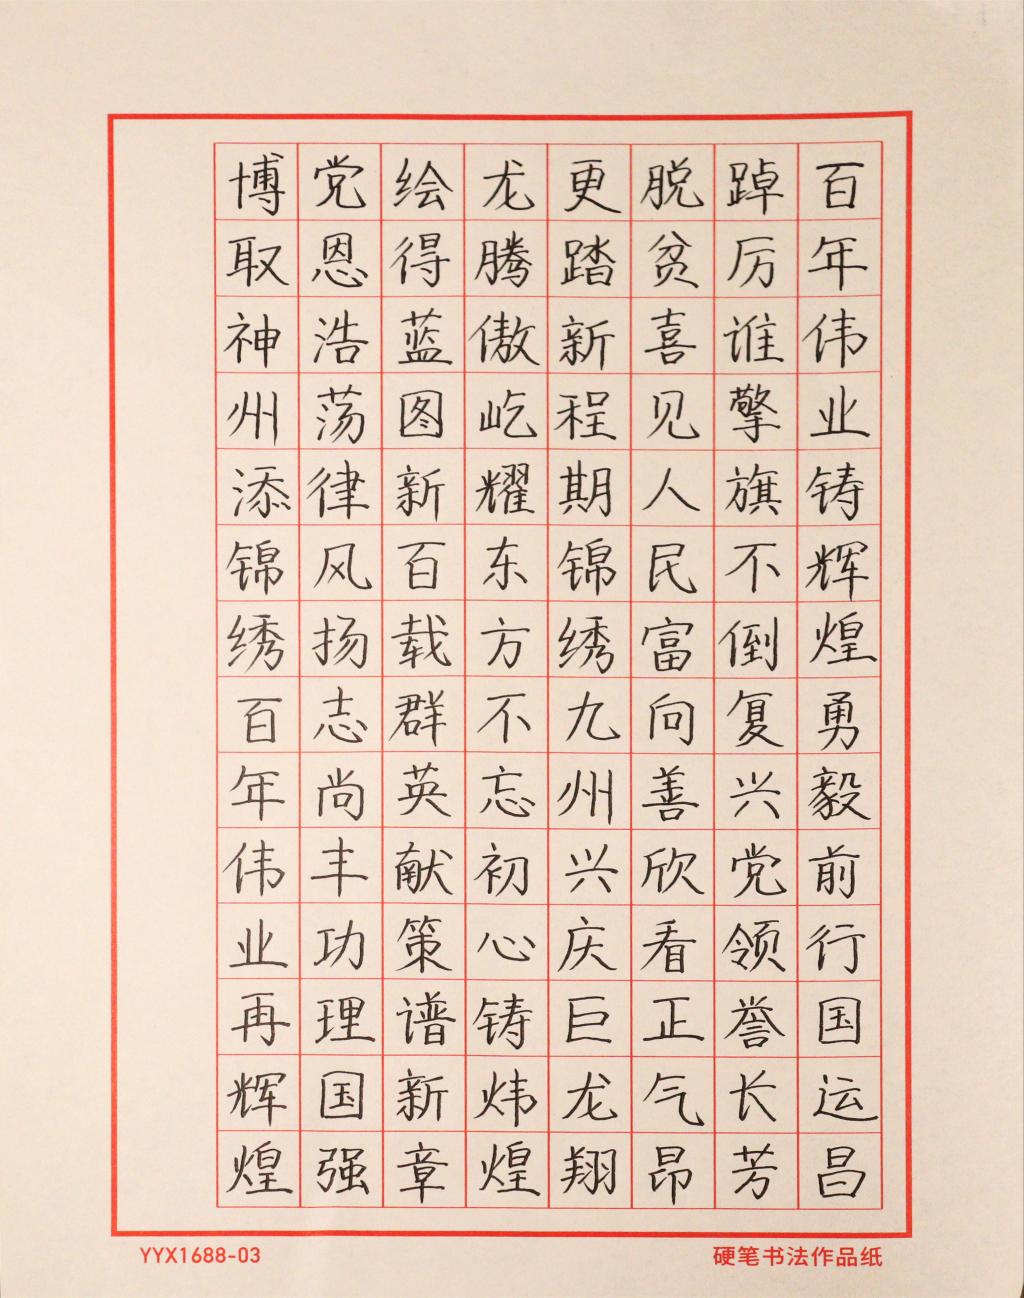 百年伟业铸辉煌勇毅前行国运昌
踔厉谁擎旗不倒复兴党领誉长芳
脱贫喜见人民富向善欣看正气昂
更踏新程期锦绣九州兴庆巨龙翔
龙腾傲屹耀东方不忘初心铸炜煌
绘得蓝图新百载群英献策谱新章
党恩浩荡律风扬志尚丰功理国强
博取神州添锦绣百年伟业再辉煌
YYX1688-03
硬笔书法作品纸